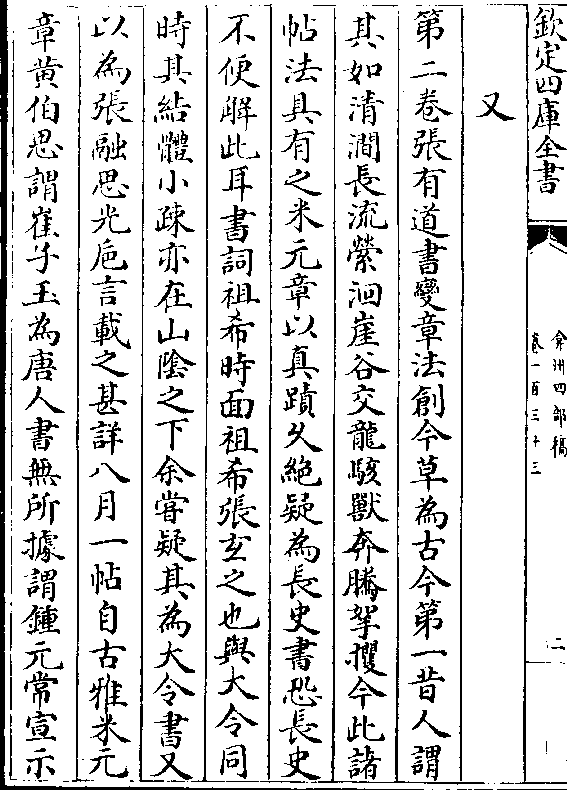 欽定四庫全書
弇州四部稿
卷一百三十三
二
又
第二卷張有道書變章法創今草為古今第一昔人謂
其如清澗長流縈洄崖谷交龍駭獸奔騰拏攫今此諸
帖法具有之米元章以真蹟久絕疑為長史書恐長史
不便辦此耳書詞祖希時面祖希張玄之也與大令同
時其結體小疎亦在山陰之下余嘗疑其為大令書又
以為張融思光巵言載之甚詳八月一帖自古雅米元
章黄伯思謂崔子玉為唐人書無所據謂鍾元常宣示